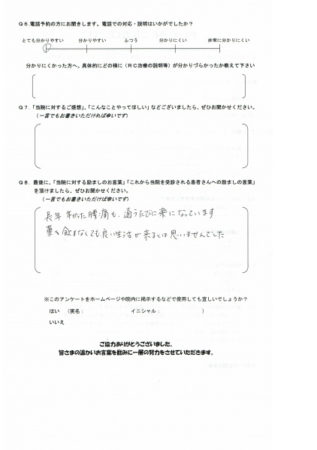 Q6.電話予約の方にお聞きします。電話での対応・説明はいかがでしたか？
とても分かりやすい　分かりやすい　ふつう　分かりにくい　非常に分かりにくい
分かりにくかった方へ、具体的にどの様に（ＲＣ治療の説明等）が分かりづらかったか教えて下さい
Q7.「当院に対するご感想」、「こんなことやってほしい」などございましたら、ぜひお聞かせください。
（一言でもお書きいただければ幸いです）
Q8. 最後に、「当院に対する励ましのお言葉」「これから当院を受診される患者さんへの励ましの言葉」
を頂けましたら、ぜひお聞かせください。
（一言でもお書きいただければ幸いです）
長年 辛かった腰痛も、通うたびに楽になっています
薬を飲まなくても良い生活が来るとは思いませんでした
※このアンケートをホームページや院内に掲示するなどで使用しても宜しいでしょうか？
はい　（実名：　　　イニシャル：　　　）
いいえ
ご協力ありがとうございました。
皆さまの温かいお言葉を励みに一層の努力をさせていただきます。